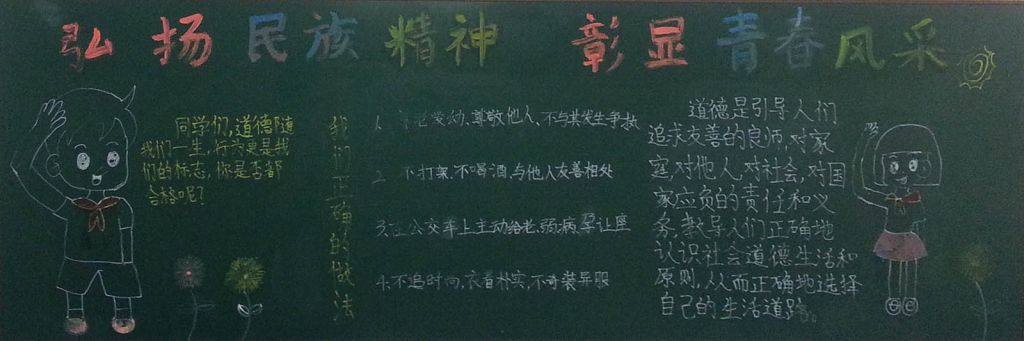 弘扬民族精神 彰显青春风采
同学们,道德随
我们一生,行为更是我
们的标志,你是否都
合格呢?
我们正确的做法
1. 尊老爱幼、尊敬他人、不与其发生争执
2. 不打架,不喝酒,与他人友善相处
3.在公交车上主动给老、弱、病、孕让座
4.不追时尚,衣着朴实,不奇装异服
道德是引导人们
追求友善的良师,对家
庭,对他人,对社会,对国
家应负的责任和义
务,教导人们正确地
认识社会道德生活和
原则,从而正确地选择
自己的生活道路。